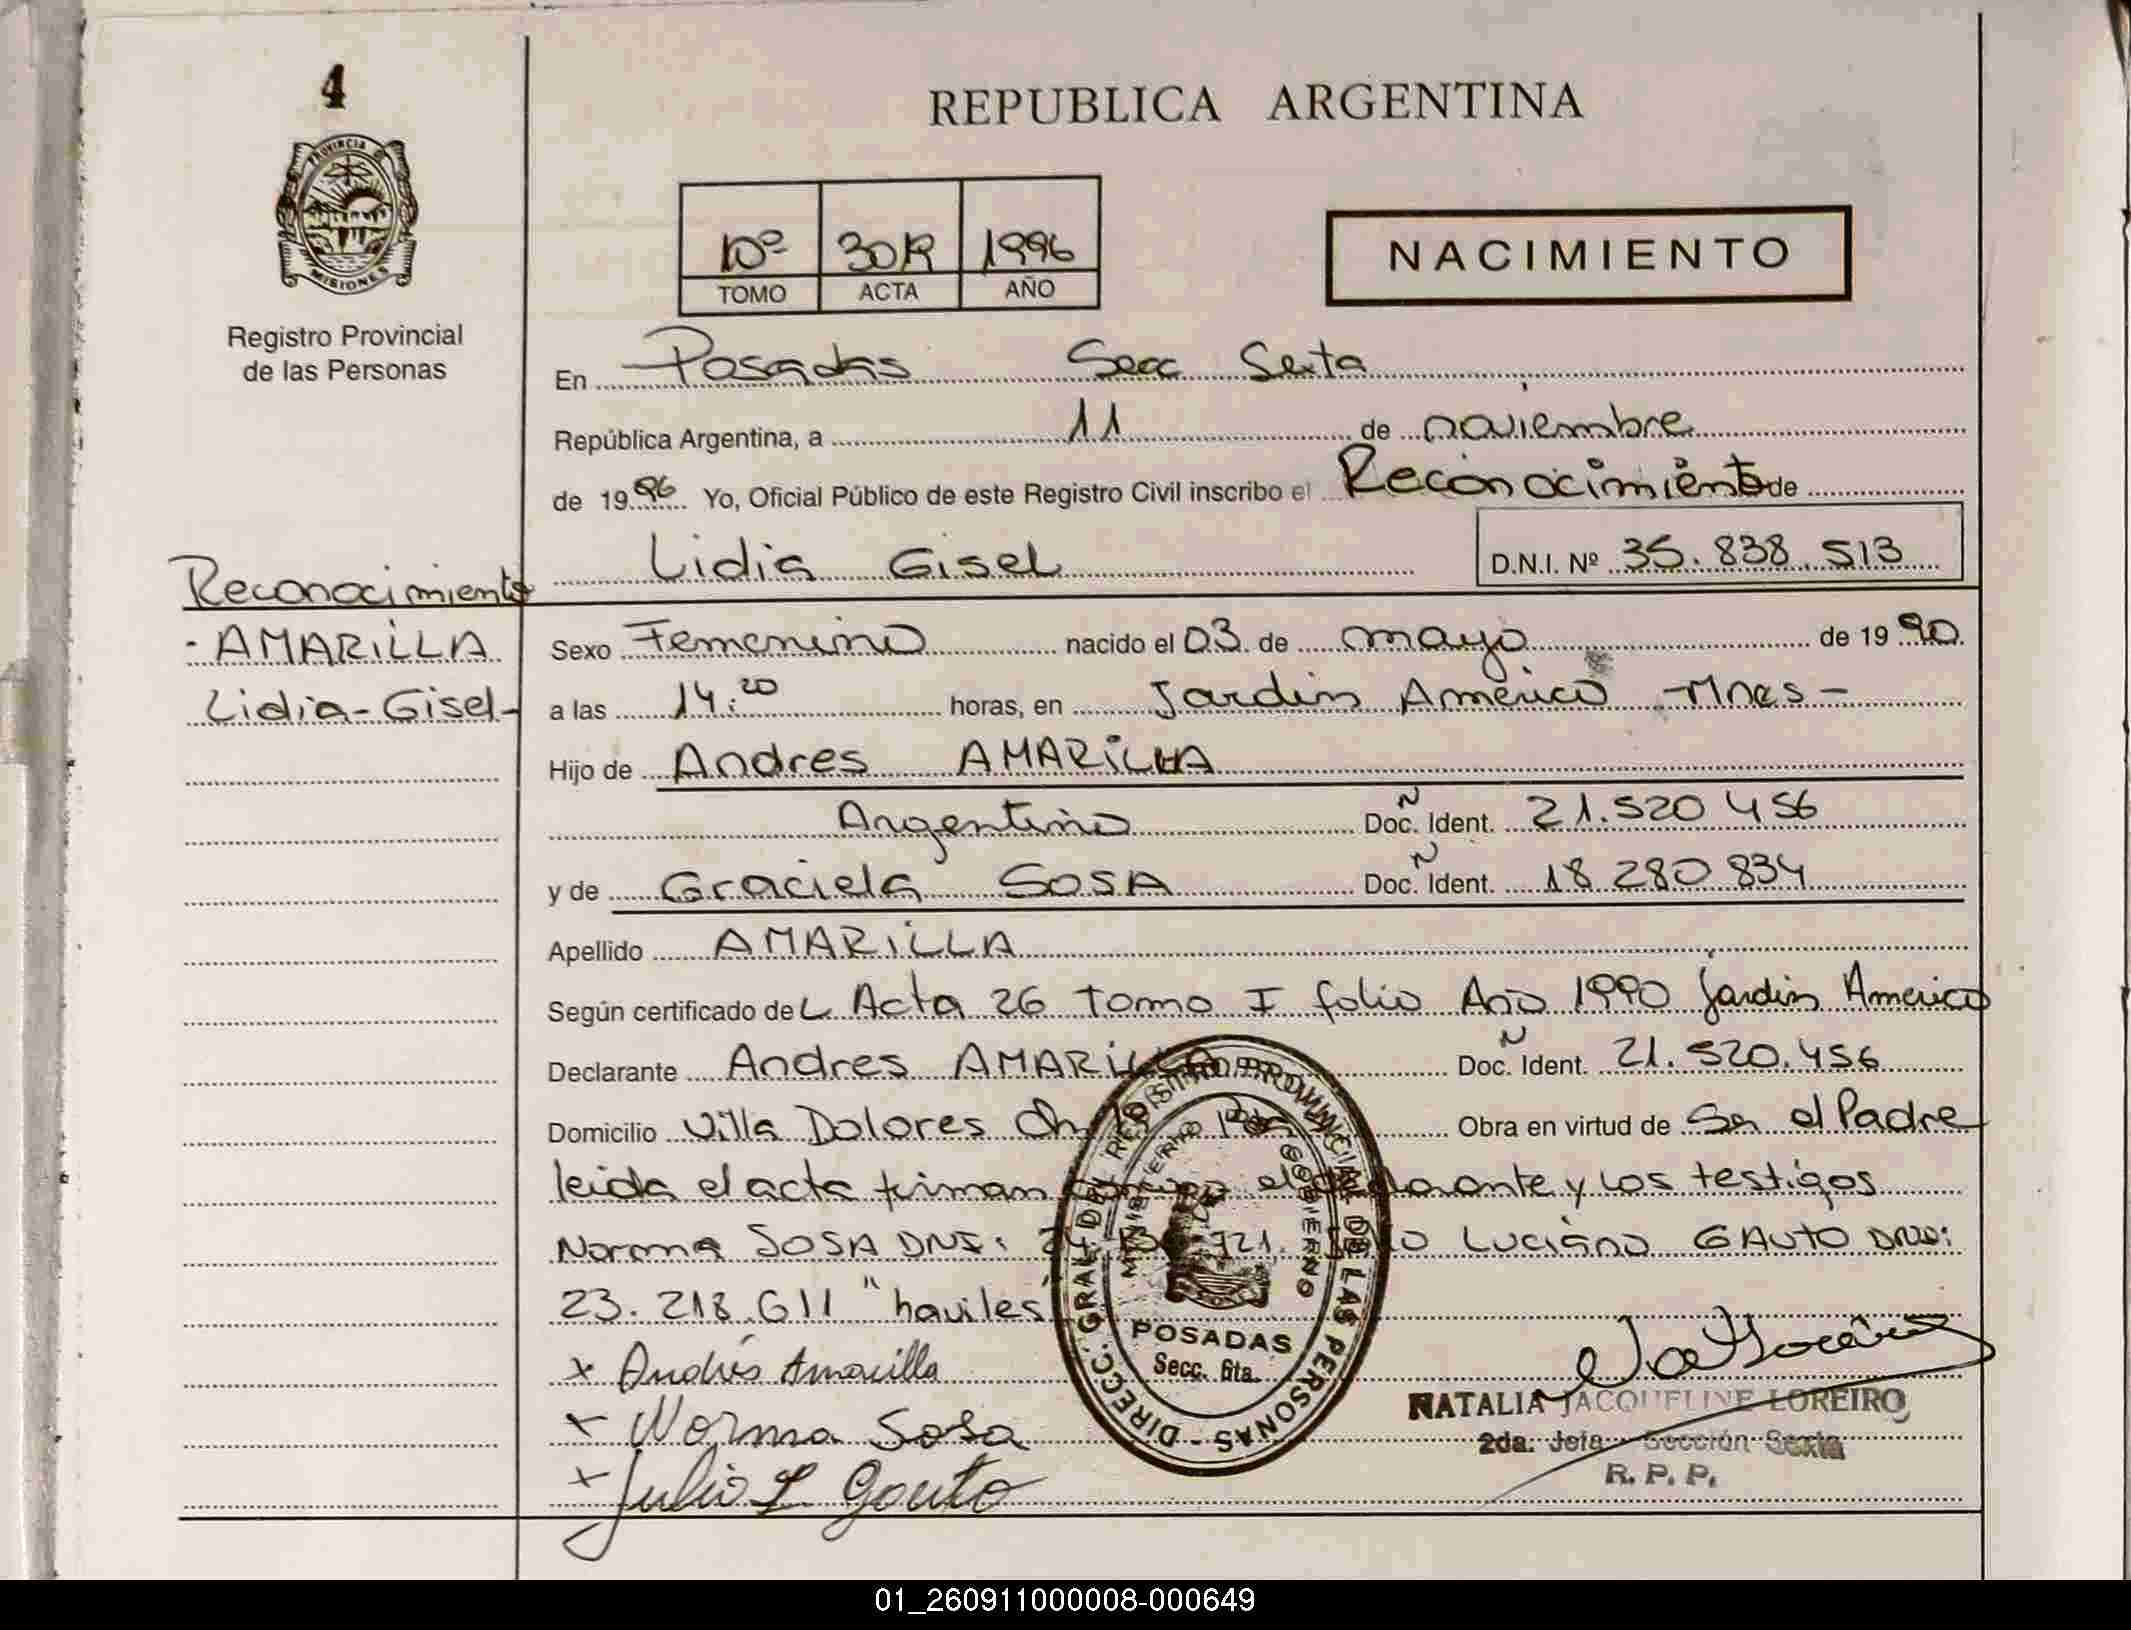 4
REPUBLICA ARGENTINA
PROVINCIA DE
MISIONES
10º 3019 1996
TOMO ACTA AÑO
NACIMIENTO
Registro Provincial
de las Personas
En Posadas Secc Sexta
República Argentina, a 11 de noviembre
de 1996 Yo, Oficial Público de este Registro Civil inscribo el Reconocimiento de
Lidia Gisel D.N.I. Nº 35.838.513
Reconocimiento
- AMARiLLA
Lidia-Gisel-
Sexo Femenino nacido el 03 de mayo de 1990.
a las 14:20 horas, en Jardin America -Mnes-
Hijo de Andres AMARiLLA
Argentino Doc. Ñ Ident. 21.520 456
y de Graciela SOSA Doc. Ñ Ident. 18 280 834
Apellido AMARiLLA
Según certificado de L Acta 26 Tomo I folio Año 1990 Jardin America
Declarante Andres AMARiLLA Doc. Ñ Ident. 21.520.456
Domicilio Villa Dolores Ch Obra en virtud de Ser el Padre
leida el acta firman el y los testigos
Norma SOSA DNI: 921. Luciano GAUTO DNI:
23.218.611 "haviles"
x Andrés Amarilla
x Norma Sosa
x Julio L Gauto
DIRECC. GRAL. DEL REGISTRO PROVINCIAL DE LAS PERSONAS -
MINISTERIO DE GOBIERNO
POSADAS
Secc. 6ta.
NATALIA JACQUELINE LOREIRO
2da. Jefa - Sección Sexta
R. P. P.
01_260911000008-000649